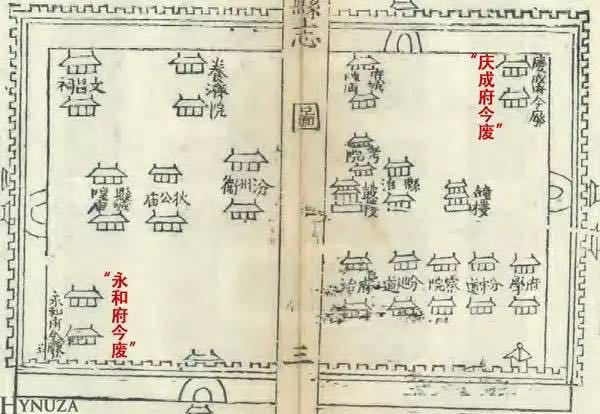 慶成府今廢
“庆成府今废”
府城隍廟
考院
縣治
鐘樓
府學
分守道
察院
分巡道
府治
縣志
圖
三
養濟院
文昌祠
汾州衛
狄公庙
縣城隍廟
永和府今廢
“永和府今废”
HYNUZA